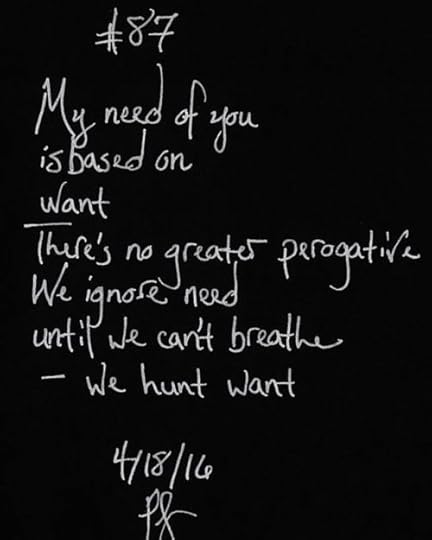 #87
My need of you
is based on
want
There's no greater perogative
We ignore need
until we can't breathe
– We hunt want
4/18/16